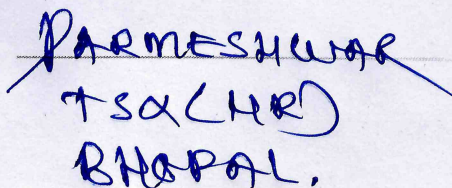 PARMESHWAR
TSO (HR)
BHOPAL.